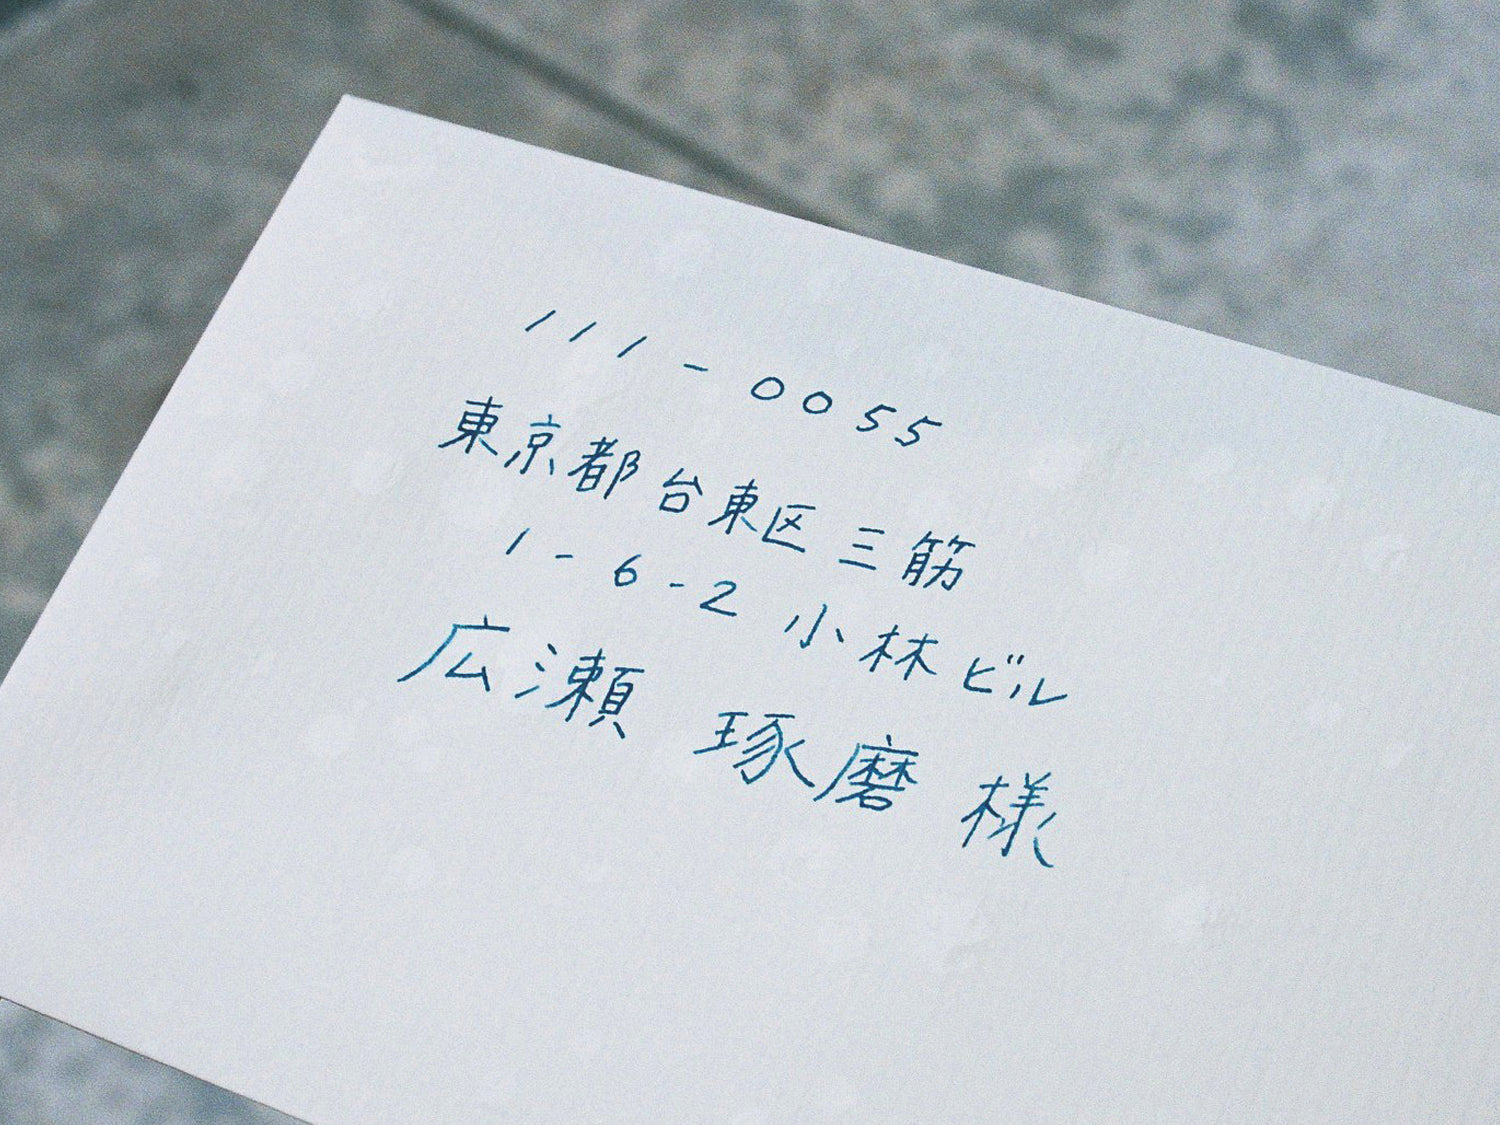 111-0055
東京都台東区三筋
1-6-2 小林ビル
広瀬 琢磨 様